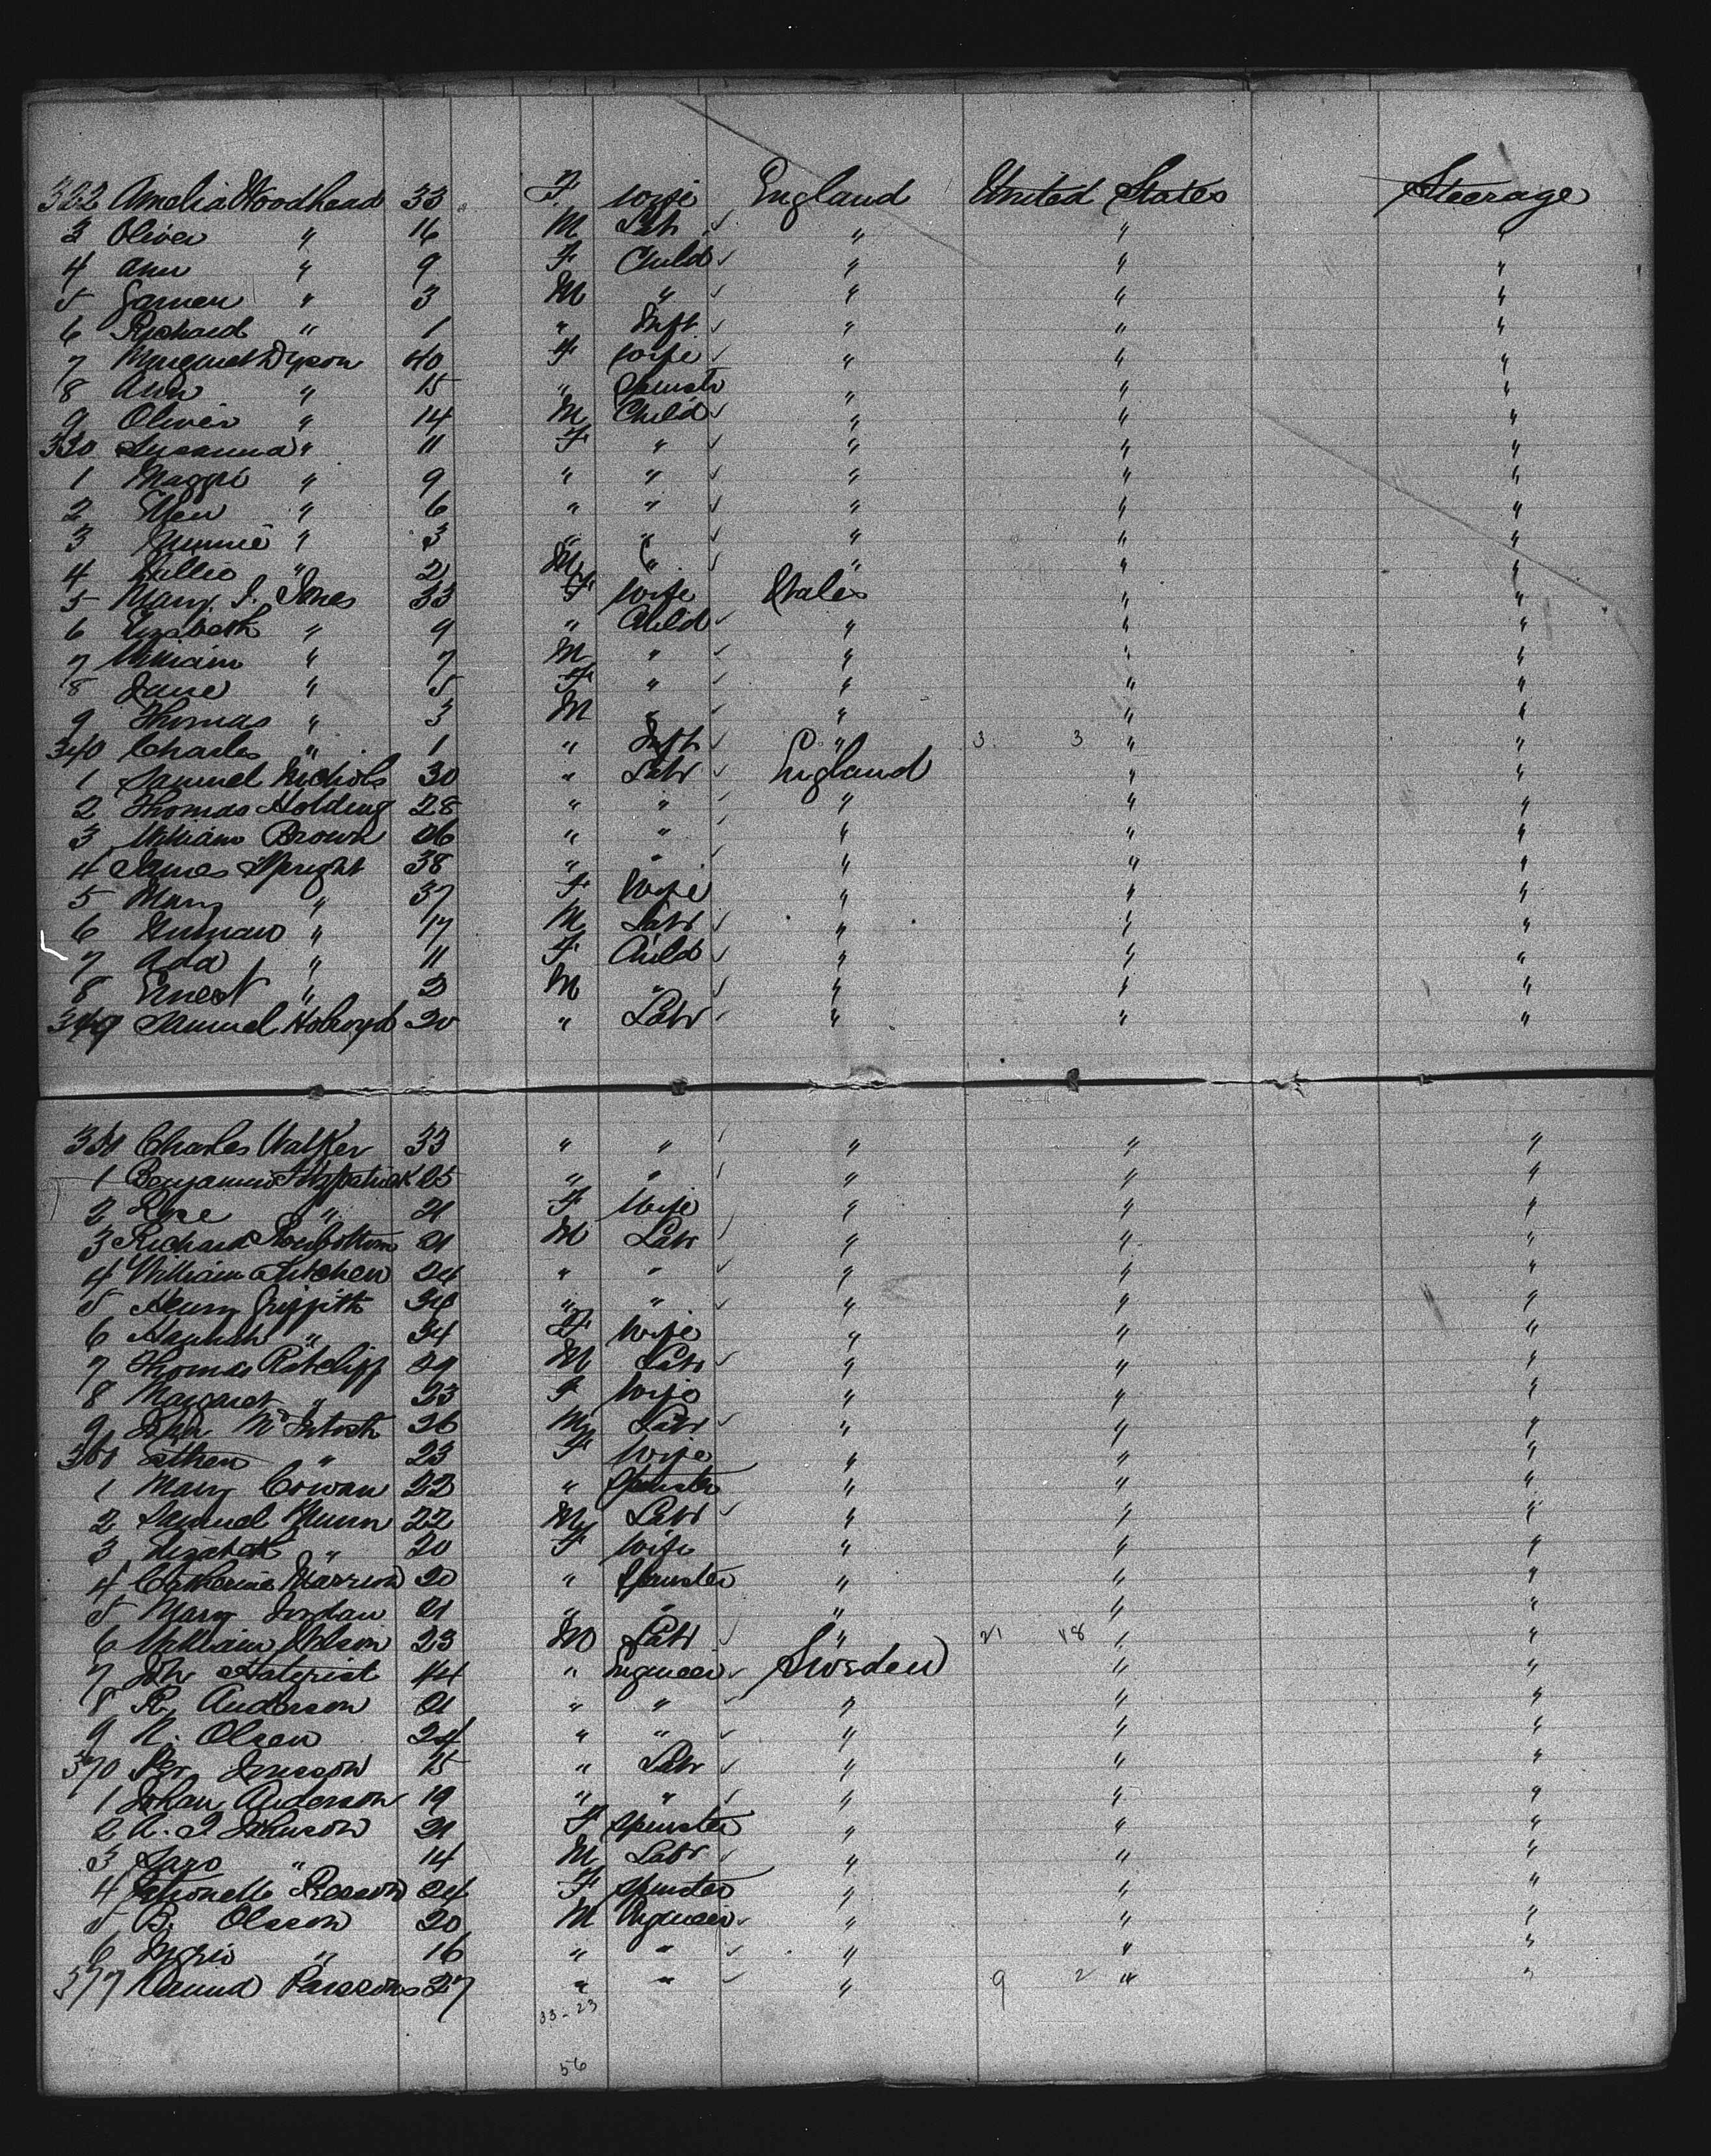 322 Amelia Woodhead 33 F. wife England United States Steerage
3 Oliver " 16 M Labr " " "
4 Ann " 9 F Child " " "
5 " 3 M " " " "
6 Richard " 1 " Inft " " "
7 Margaret Dyson 40 F wife " " "
8 Ann " 15 " Spinster " " "
9 Oliver " 14 M Child " " "
330 Susanna " 11 F " " " "
1 Maggie " 9 " " " " "
2 Ellen " 6 " " " " "
3 Minnie " 3 " " " " "
4 Willie " 2 M " " " "
5 Mary J. Jones 33 F wife Wales " "
6 Elizabeth " 9 " Child " " "
7 William " 7 M " " " "
8 Jane " 5 F " " " "
9 Thomas " 3 M " " " "
340 Charles " 1 " Inft " 3 3 " "
1 Samuel Nichols 30 " Labr England " "
2 Thomas Holding 28 " " " " "
3 William Brown 26 " " " " "
4 James Wright 38 " " " " "
5 Mary " 37 F Wife " " "
6 " 17 M Labr " " "
7 Ada " 11 F Child " " "
8 Ernest " 2 M " " " "
349 Samuel Holroyd 20 " Labr " " "
350 Charles Walker 33 " " " " "
1 Benjamin Fitzpatrick 25 " " " " "
2 " 21 F Wife " " "
3 Richard 21 M Labr " " "
4 William Kitchen 24 " " " " "
5 Henry Griffith 34 " " " " "
6 Hannah " 34 F Wife " " "
7 Thomas Ratcliff 29 M Labr " " "
8 Margaret " 23 F Wife " " "
9 John McIntosh 26 M Labr " " "
360 Esther " 23 F Wife " " "
1 Mary Cowan 22 " Spinster " " "
2 Samuel Munn 22 M Labr " " "
3 Elizabeth " 20 F Wife " " "
4 Catherine 20 " Spinster " " "
5 Mary Jordan 21 " " " " "
6 William Wilson 23 M Labr " 21 18 " "
7 44 " Engineer Sweden " "
8 R. Anderson 21 " " " " "
9 N. Olsen 24 " " " " "
370 Per 15 " Labr " " "
1 Johan Anderson 19 " " " " "
2 A. J Johnson 21 F Spinster " " "
3 Lars " 14 M Labr " " "
4 24 F Spinster " " "
5 B. Olsson 20 M Engineer " " "
6 " 16 " " " " "
377 27 " " " 9 2 " "
33 - 23
56